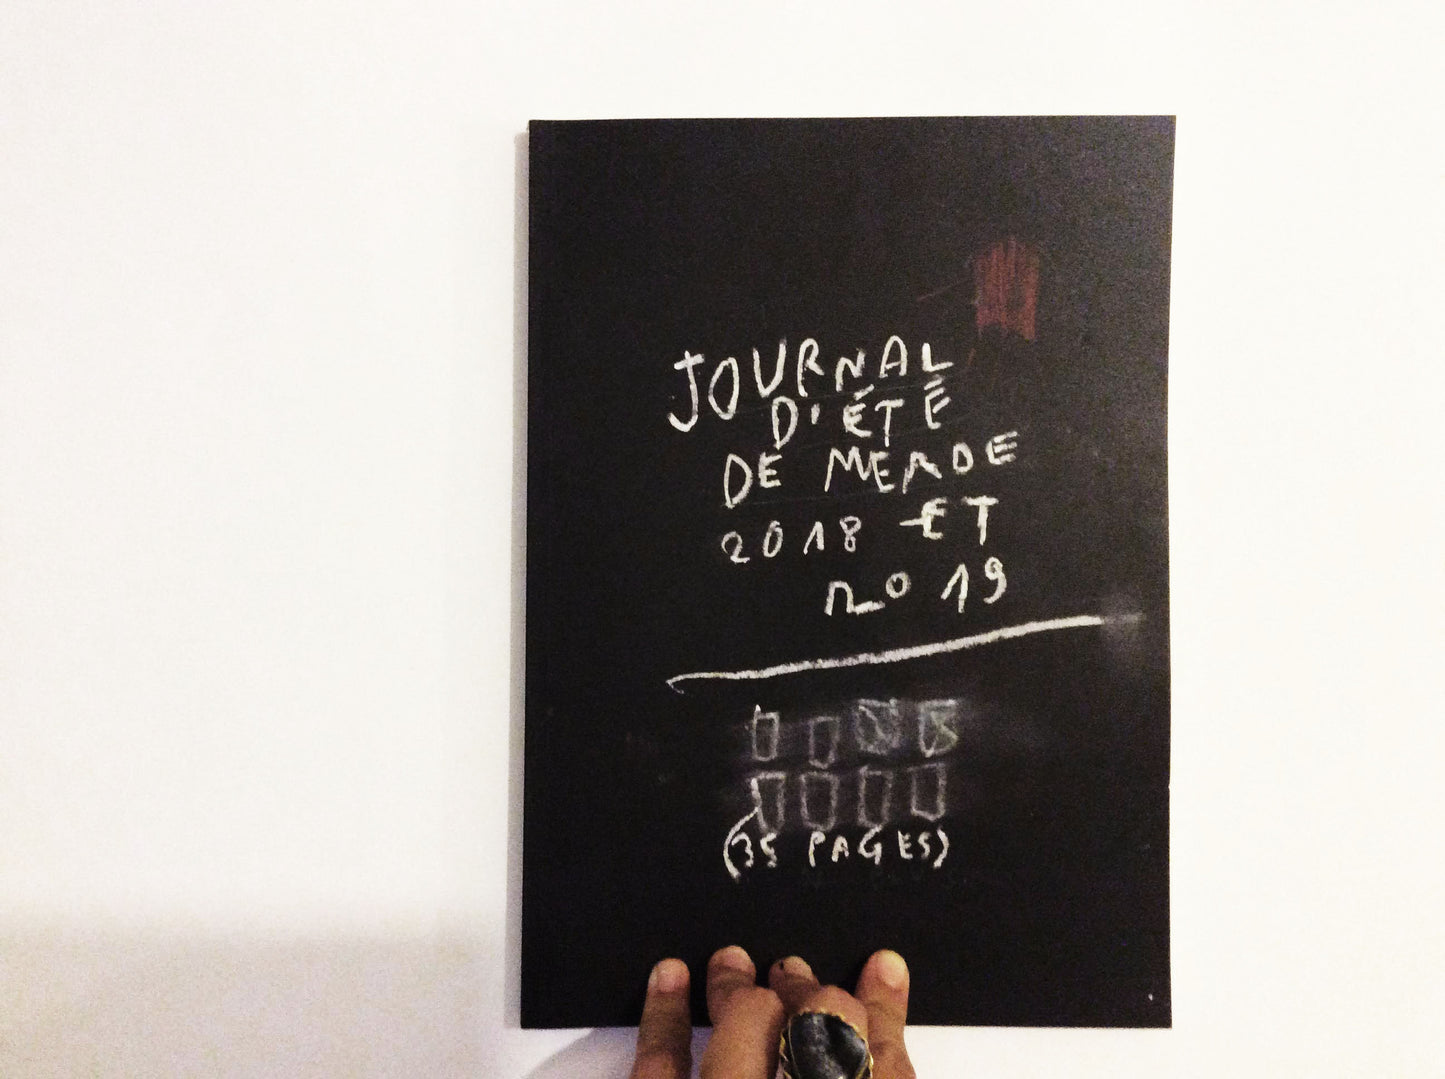 JOURNAL
D'ÉTÉ
DE MERDE
2018 ET
2019
(35 PAGES)